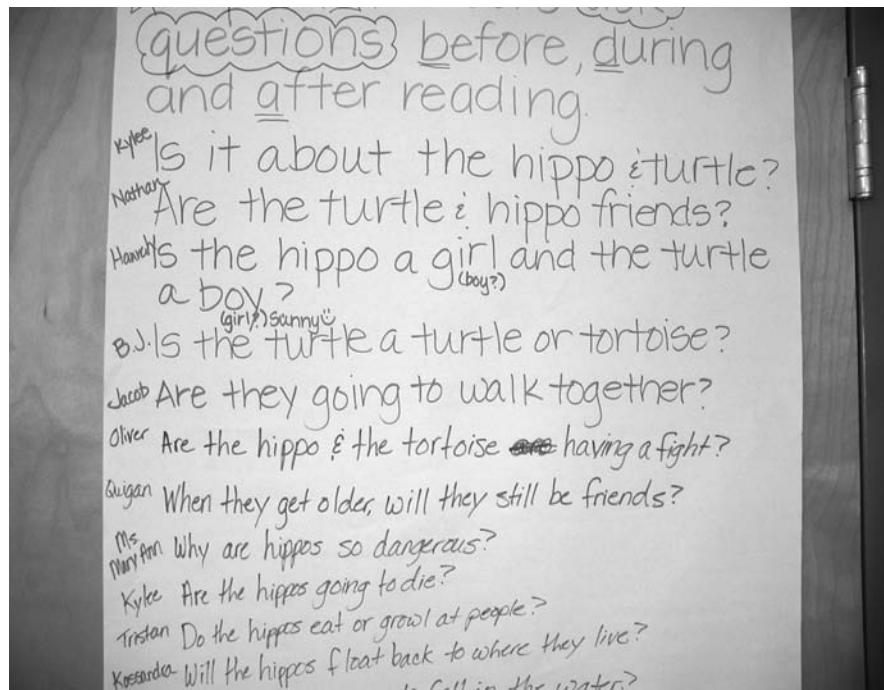 questions before, during
and after reading.
Kylee Is it about the hippo & turtle?
Nathan Are the turtle & hippo friends?
Hannah Is the hippo a girl and the turtle
(boy?)
a boy?
(girl?) Sanny
B.J. Is the turtle a turtle or tortoise?
Jacob Are they going to walk together?
Oliver Are the hippo & the tortoise are having a fight?
Quigan When they get older, will they still be friends?
Ms
Mary Ann Why are hippos so dangerous?
Kylee Are the hippos going to die?
Tristan Do the hippos eat or growl at people?
Kassandra Will the hippos float back to where they live?
fall in the water?